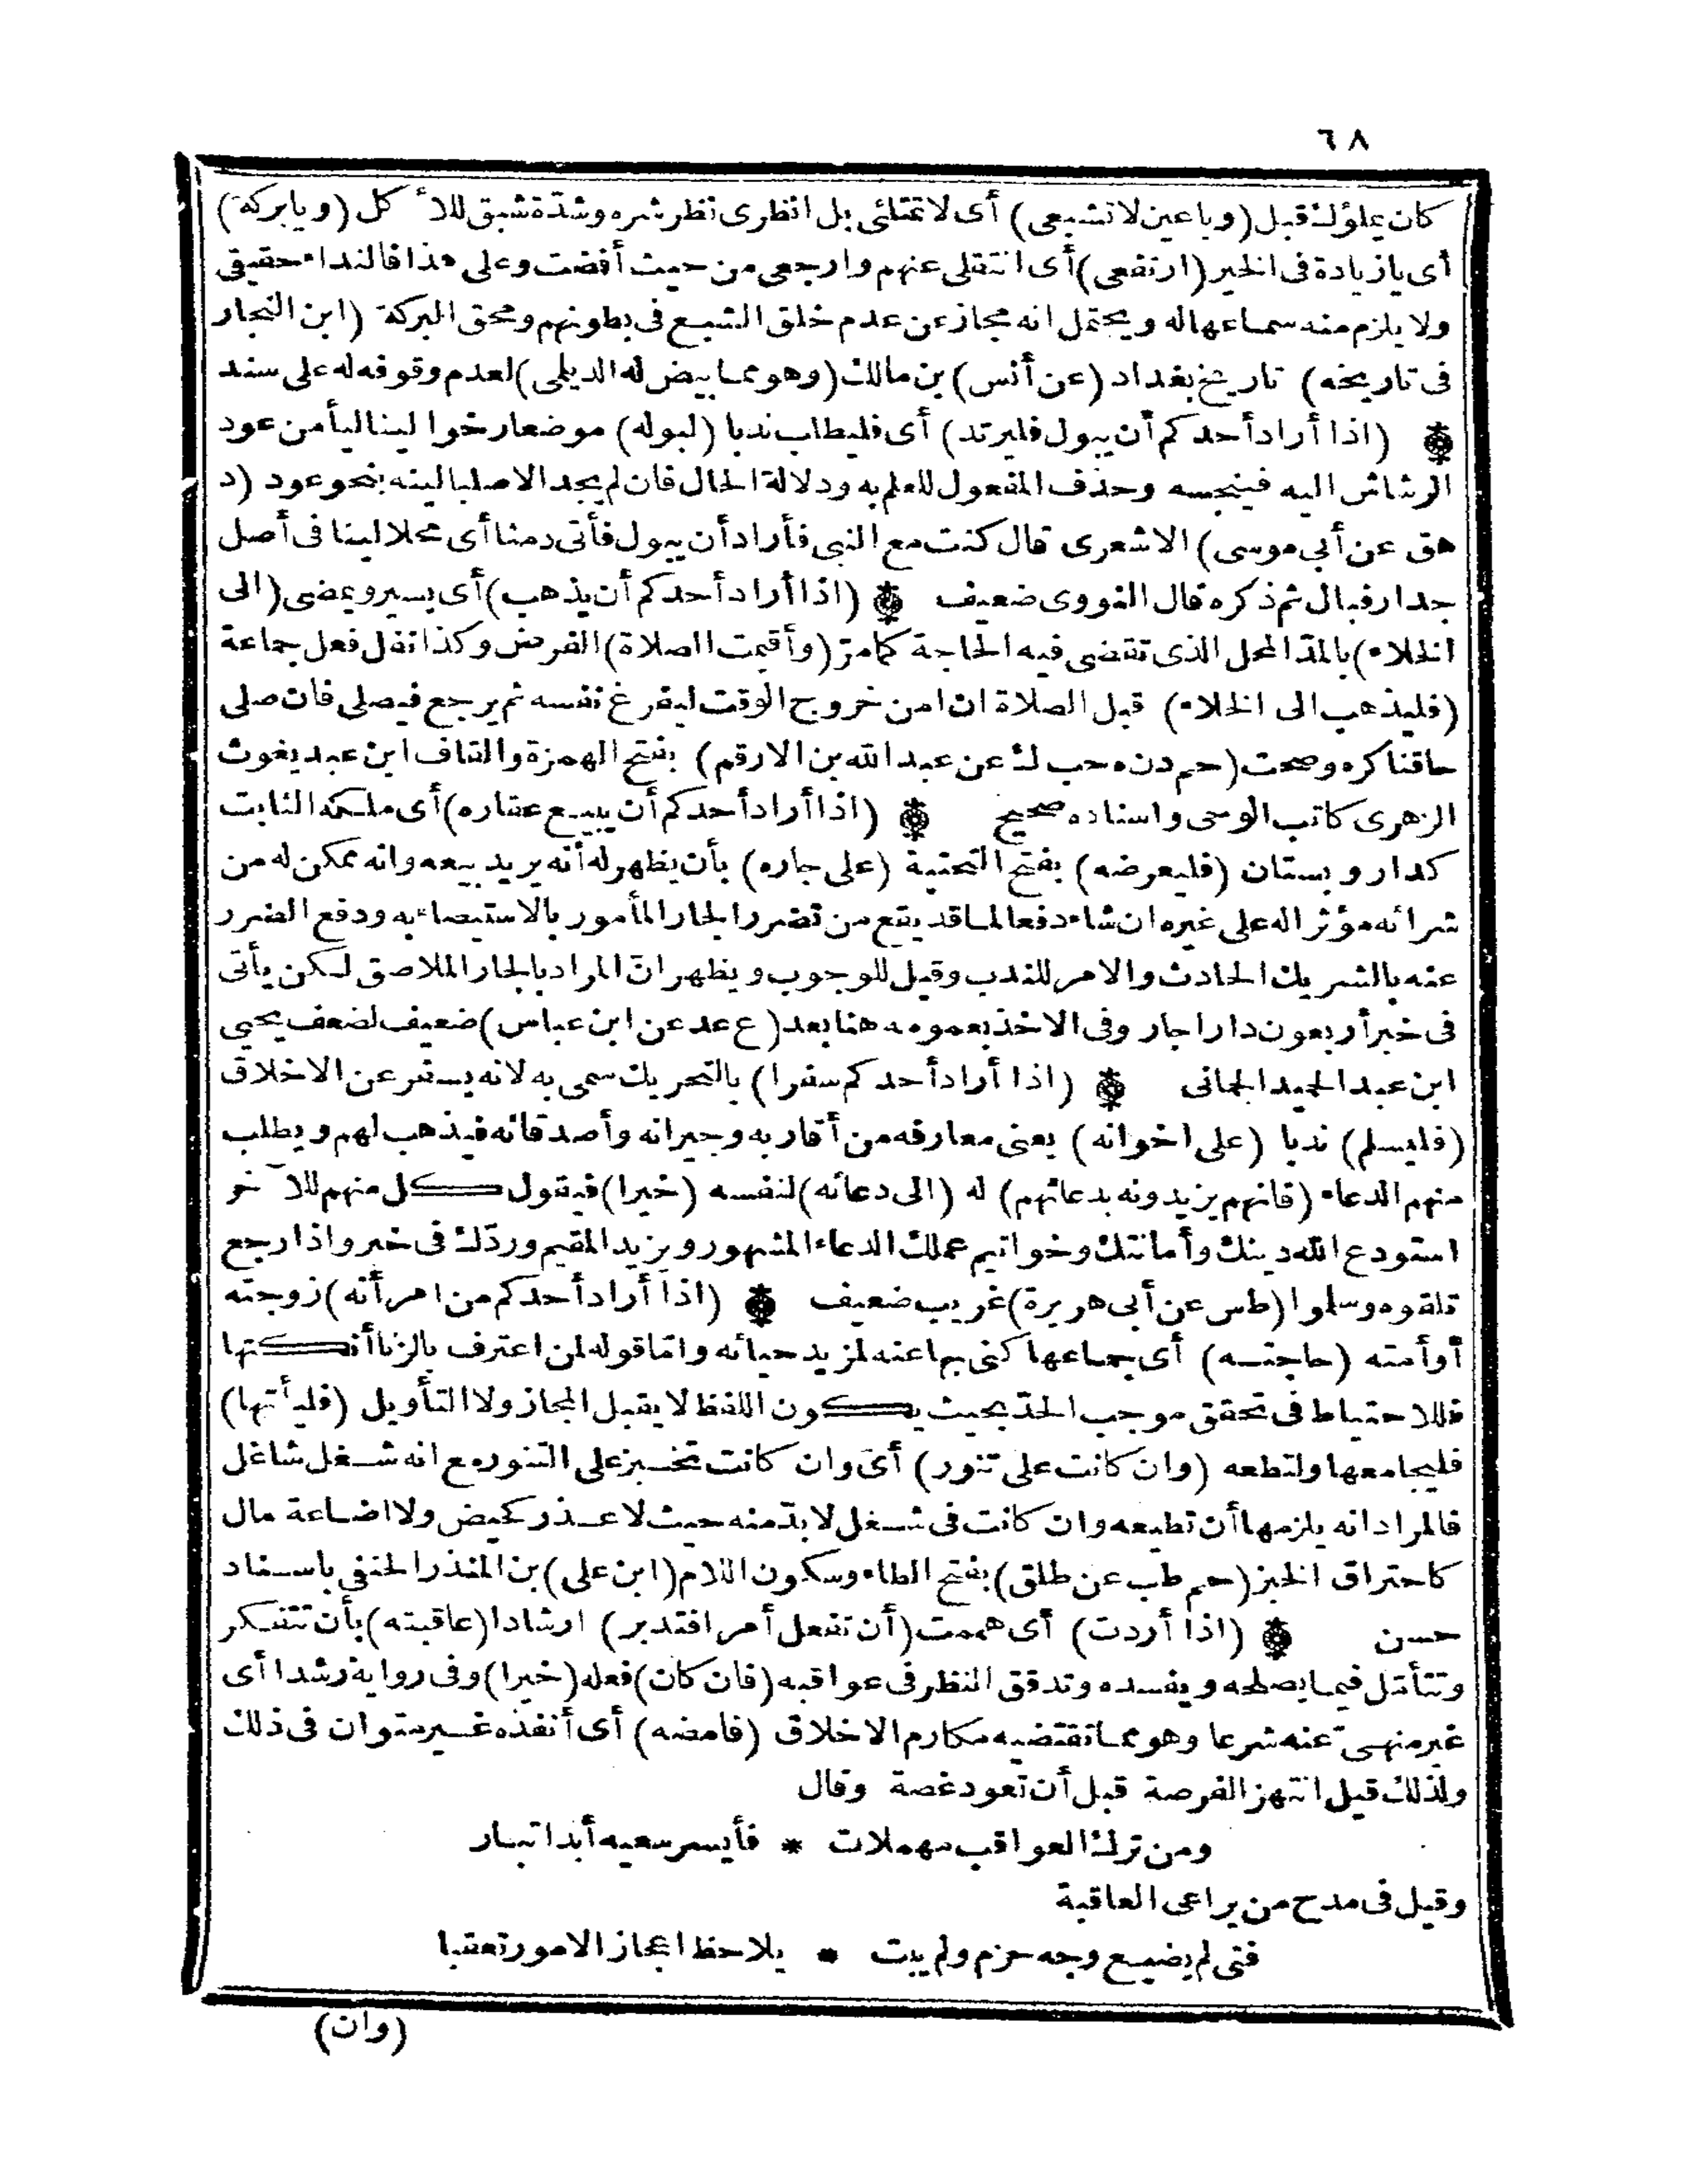 ٦٨
كان يملؤك قبل (ويا عين لا تشبعى) أى لا تمتلئى بل انظرى نظر شره وشدّة شبق للأكل (ويا بركة)
أى يازيادة فى الخير (ارتفعى) أى انتقلى عنهم وارجعى من حيث أفضت وعلى هذا فالنداء حقيقى
ولا يلزم منه سماعها له ويحتمل انه مجاز عن عدم خلق الشبع فى بطونهم ومحق البركة (ابن النجار
فى تاريخه) تاريخ بغداد (عن أنس) بن مالك (وهو مما بيض له الديلمى) لعدم وقوفه له على سند
(اذا أراد أحدكم أن يبول فليرتد) أى فليطلب ندبا (لبوله) موضعا رخوا لينا ليأمن عود
الرشاش اليه فينجسه وحذف المفعول للعلم به ودلالة الحال فان لم يجد الا صلبا لينه بنحو عود (د
هق عن أبى موسى) الاشعرى قال كنت مع النبى فأراد أن يبول فأتى دمثا أى محلا لينا فى أصل
جدار فبال ثم ذكره قال النووى ضعيف (اذا أراد أحدكم أن يذهب) أى يسير ويمضى (الى
الخلاء) بالمدّ المحل الذى تقضى فيه الحاجة كما مرّ (وأقيمت الصلاة) الفرض وكذا نفل فعل جماعة
(فليذهب الى الخلاء) قبل الصلاة ان امن خروج الوقت ليفرغ نفسه ثم يرجع فيصلى فان صلى
حاقنا كره وصحت (حم د ن ه حب ك عن عبد الله بن الارقم) بفتح الهمزة والقاف ابن عبد يغوث
الزهرى كاتب الوحى واسناده صحيح (اذا أراد أحدكم أن يبيع عقاره) أى ملكه الثابت
كدار وبستان (فليعرضه) بفتح التحتية (على جاره) بأن يظهر له أنه يريد بيعه وانه ممكن له من
شرائه مؤثر اله على غيره ان شاء دفعا لما قد يقع من تضرر الجار المأمور بالاستيصاء به ودفع الضرر
عنه بالشريك الحادث والامر للندب وقيل للوجوب ويظهر انّ المراد بالجار الملاصق لكن يأتى
فى خبر أربعون دارا جار وفى الاخذ بعمومه هنا بعد (ع عد عن ابن عباس) ضعيف لضعف يحيى
ابن عبد الحميد الحمانى (اذا أراد أحدكم سفرا) بالتحريك سمى به لانه يسفر عن الاخلاق
(فليسلم) ندبا (على اخوانه) يعنى معارفه من أقاربه وجيرانه وأصدقائه فيذهب لهم ويطلب
منهم الدعاء (فانهم يزيدونه بدعائهم) له (الى دعائه) لنفسه (خيرا) فيقول كل منهم للآخر
استودع الله دينك وأمانتك وخواتيم عملك الدعاء المشهور ويزيد المقيم وردّك فى خير واذا رجع
تلقوه وسلموا (طس عن أبى هريرة) غريب ضعيف (اذا أراد أحدكم من امرأته) زوجته
أو أمته (حاجته) أى جماعها كنى بها عنه لمزيد حيائه وامّا قوله لمن اعترف بالزنا أنكتها
فللاحتياط فى تحقق موجب الحدّ بحيث يكون اللفظ لا يقبل المجاز ولا التأويل (فليأتها)
فليجامعها ولتطعه (وان كانت على تنور) أى وان كانت تخبز على التنور مع انه شغل شاغل
فالمراد انه يلزمها أن تطيعه وان كانت فى شغل لا بدّ منه حيث لا عذر كحيض ولا اضاعة مال
كاحتراق الخبز (حم طب عن طلق) بفتح الطاء وسكون اللام (ابن على) بن المنذر الحنفى باسناد
حسن (اذا أردت) أى هممت (أن تفعل أمرا فتدبر) ارشادا (عاقبته) بأن تتفكر
وتتأمّل فيما يصلحه ويفسده وتدقق النظر فى عواقبه (فان كان) فعله (خيرا) وفى رواية رشدا أى
غير منهىّ عنه شرعا وهو مما تقتضيه مكارم الاخلاق (فامضه) أى أنفذه غير متوان فى ذلك
ولذلك قيل انتهز الفرصة قبل أن تعود غصة وقال
ومن ترك العواقب مهملات * فأيسر سعيه أبدا تبار
وقيل فى مدح من يراعى العاقبة
فتى لم يضيع وجه حزم ولم يبت * يلاحظ اعجاز الامور تعقبا
(وان)